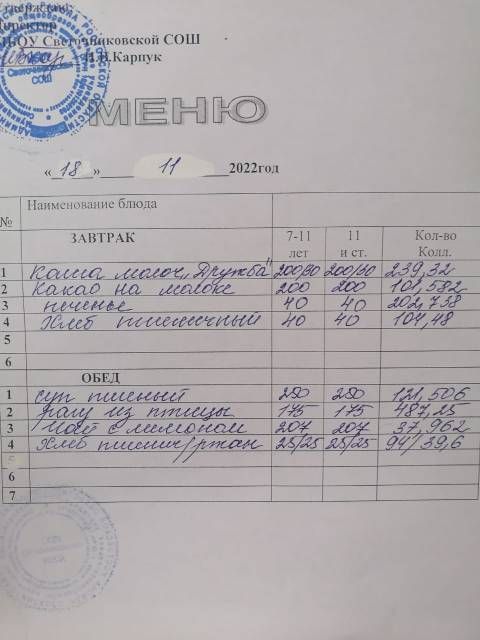 Утверждаю:
Директор
МБОУ Светочниковской СОШ
Карпук
МЕНЮ
«18» 11 2022год
№ Наименование блюда
ЗАВТРАК 7-11 лет 11 и ст. Кол-во Колл.
1 Каша молоч „Дружба" 200/30 200/30 239,32
2 Какао на молоке 200 200 101,582
3 печенье 40 40 202,738
4 Хлеб пшеничный 40 40 104,48
5
6
ОБЕД
1 суп пшеный 250 250 121,506
2 рагу из птицы 175 175 487,25
3 Чай с лимоном 207 207 37,962
4 Хлеб пшенич/ржан 25/25 25/25 94/39,6
5
6
7